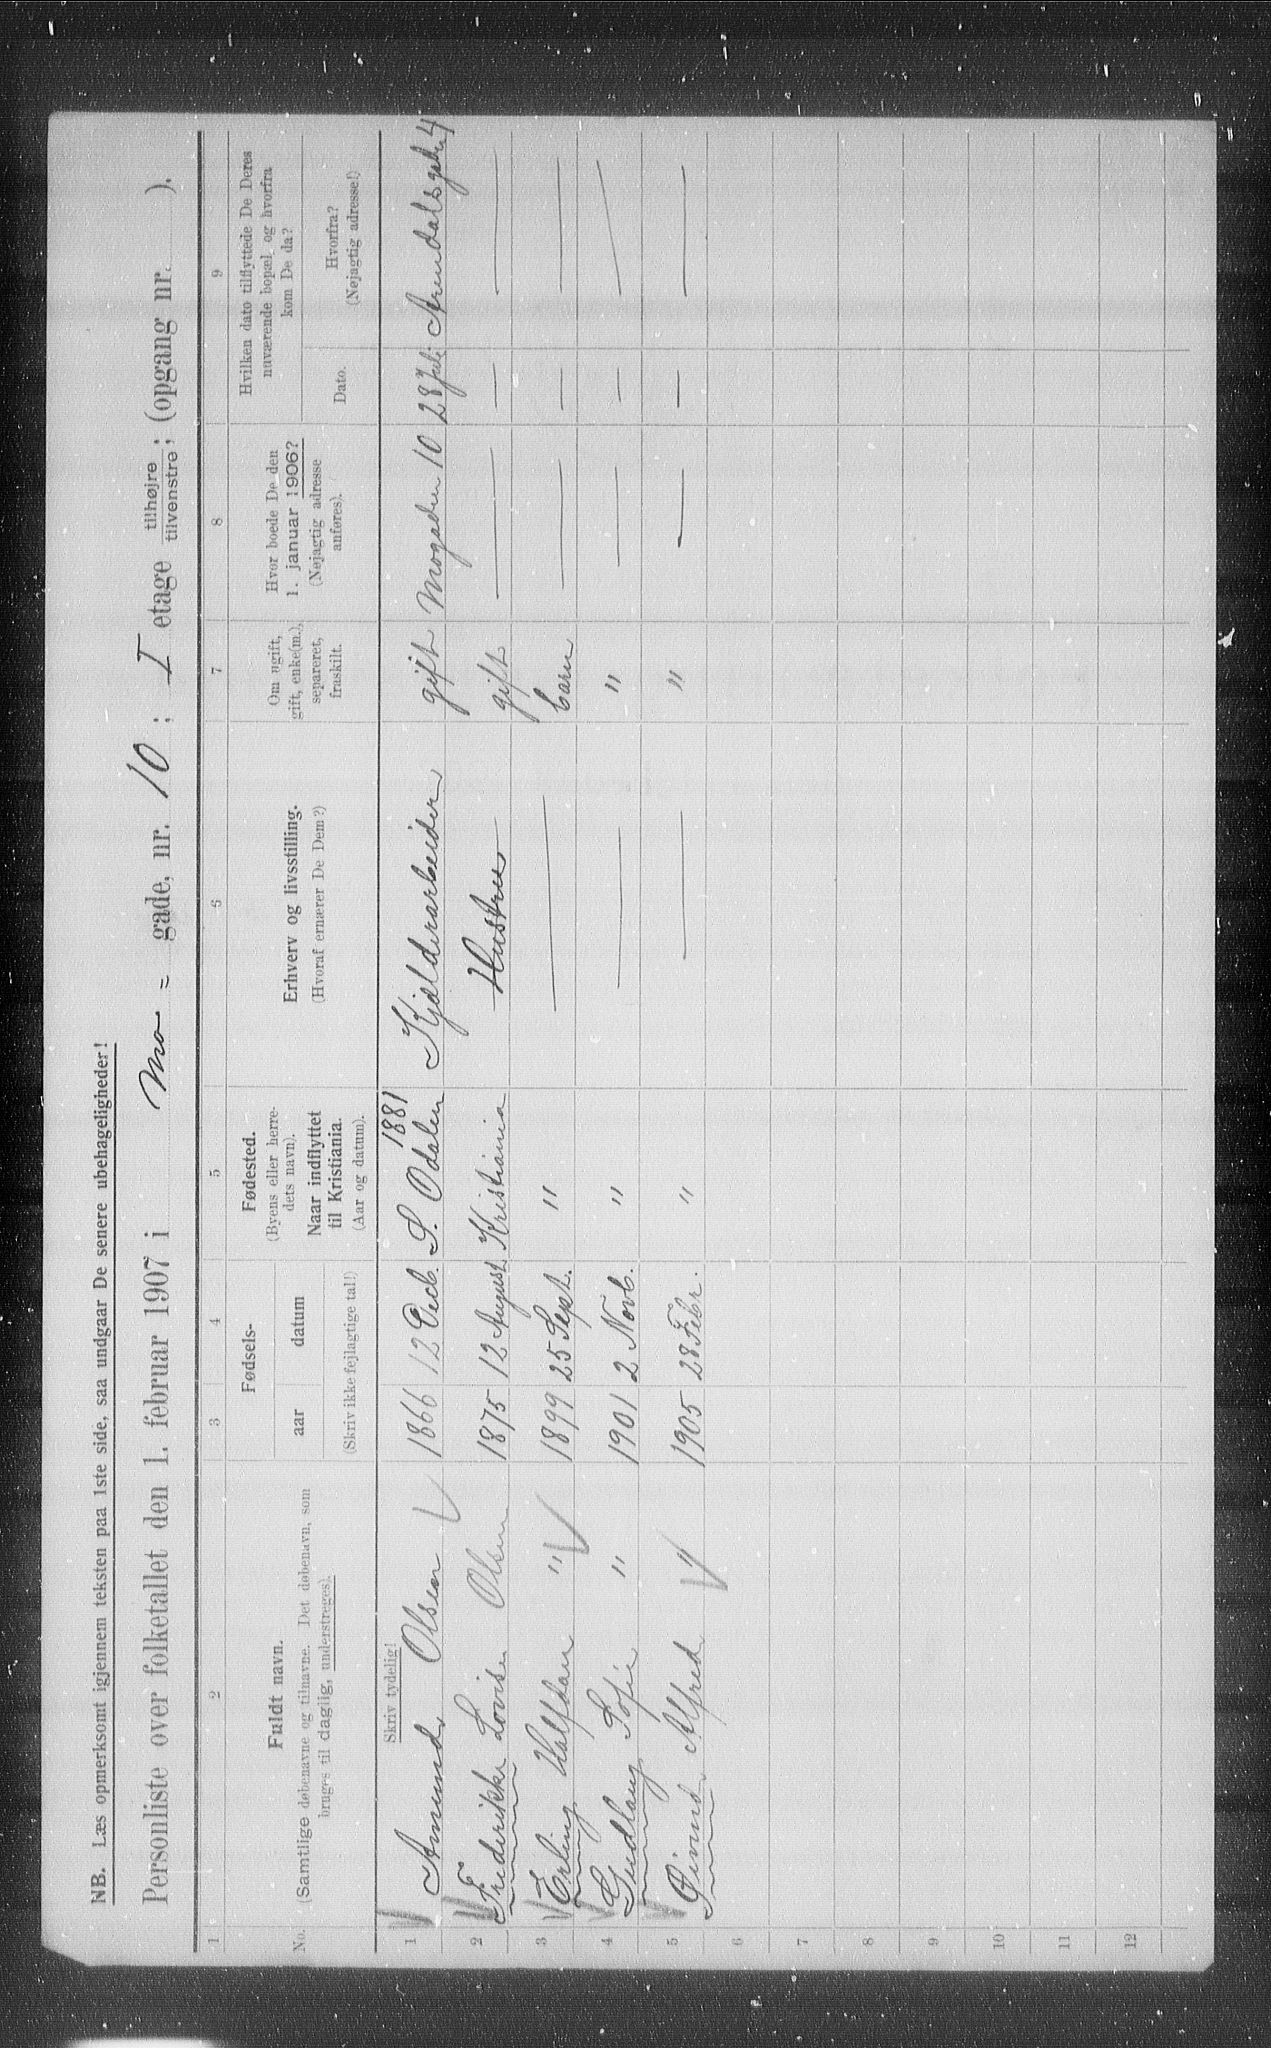 NB. Læs opmerksomt igjennem teksten paa 1ste side, saa undgaar De senere ubehageligheder!
Personliste over folketallet den 1. februar 1907 i Mo = gade, nr. 10; I etage tilhøjre tilvenstre; (opgang nr. ).
1 2 3 4 5 6 7 8 9
No.
Fuldt navn.
(Samtlige døbenavne og tilnavne. Det døbenavn, som
bruges til daglig, understreges).
Fødsels-
aar datum
(Skriv ikke fejlagtige tal!)
Fødested.
(Byens eller herre-
dets navn).
Naar indflyttet
til Kristiania.
(Aar og datum).
Erhverv og livsstilling.
(Hvoraf ernærer De Dem?)
Om ugift,
gift, enke(m.),
separeret,
fraskilt.
Hvor boede De den
1. januar 1906?
(Nøjagtig adresse
anføres).
Hvilken dato tilflyttede De Deres
nuværende bopæl, og hvorfra
kom De da?
Dato.
Hvorfra?
(Nøjagtig adresse!)
Skriv tydelig!
1 Amund Olsen 1866 12 Decb. S. Odalen 1881 Kjælderarbeider gift Mogaden 10 28 Juli Arendalsgaden 4
2 Frederikke Lovise Olsen 1875 12 August Kristiania Hustru gift — — —
3 Erling Halfdan " 1899 25 Sept. " — barn — — —
4 Gudlaug Sofie " 1901 2 Novb. " — " — — —
5 Øivind Alfred " 1905 28 Febr. " — " — — —
6
7
8
9
10
11
12